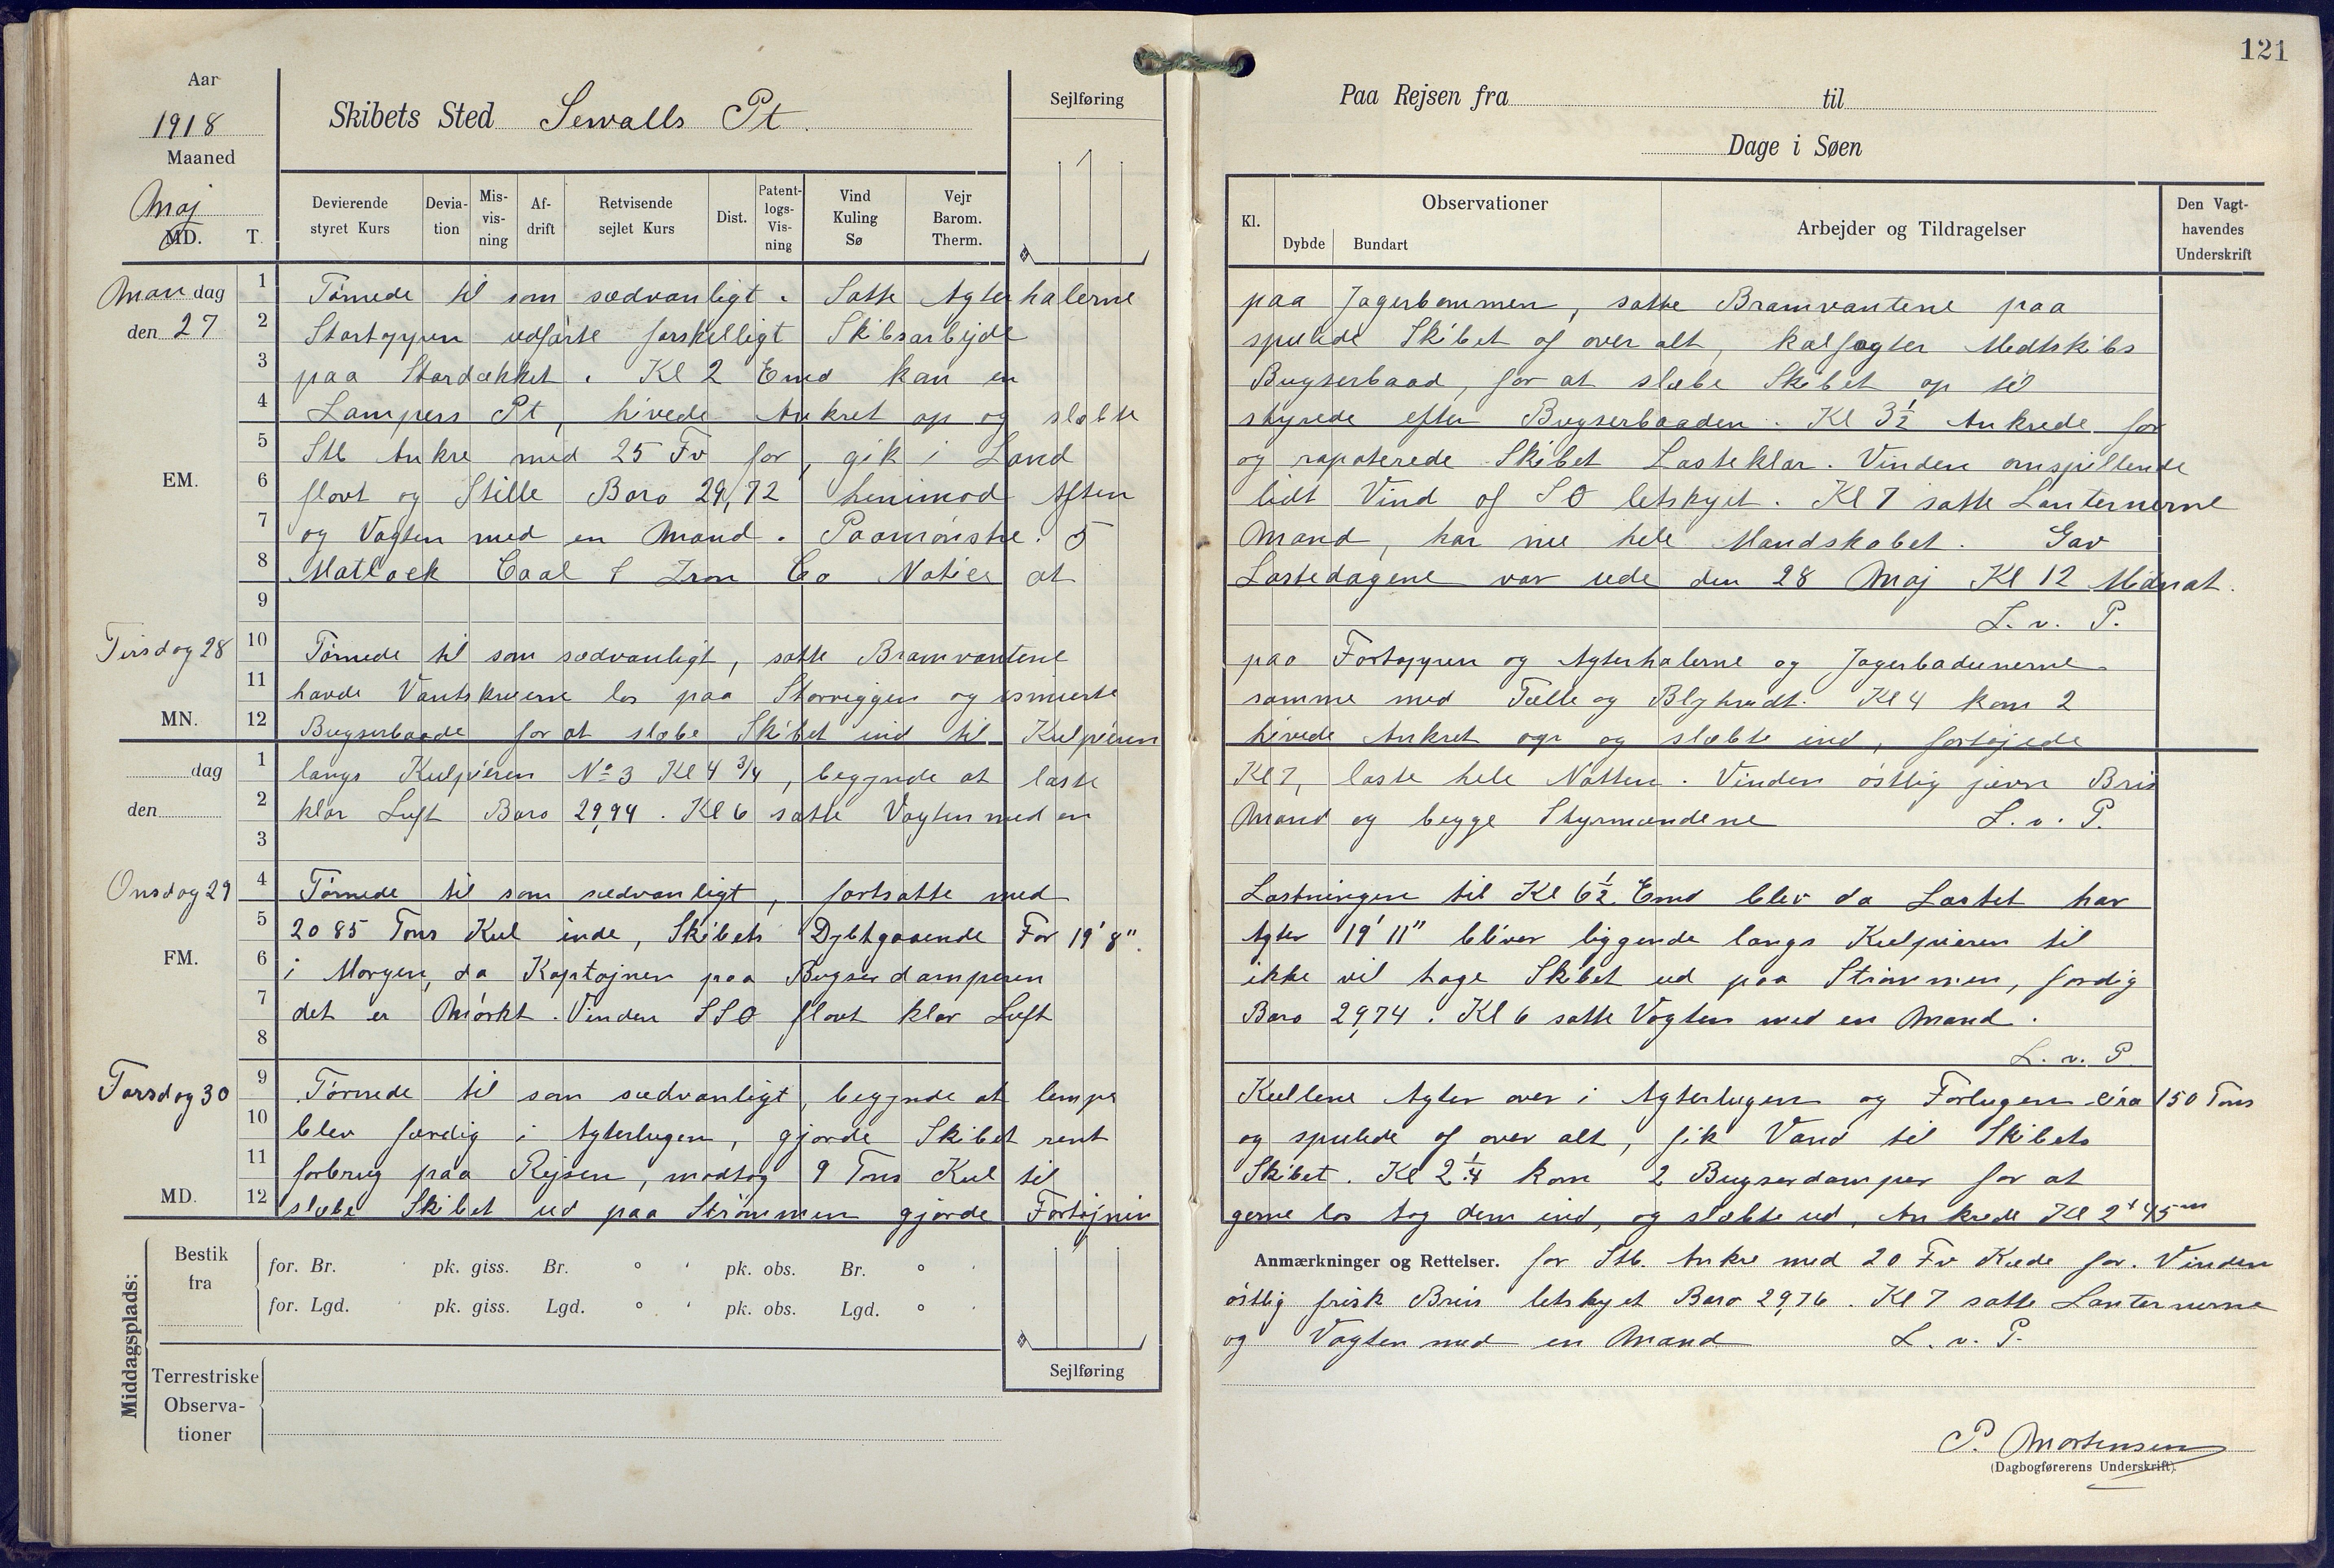 121
Aar
1918
Maaned
Maj
MD. T.
Skibets Sted Sewalls Pt.
Sejlføring
Paa Rejsen fra til
Dage i Søen
Devierende styret Kurs
Devia-tion
Mis-vis-ning
Af-drift
Retvisende sejlet Kurs
Dist.
Patent-logs-Vis-ning
Vind Kuling Sø
Vejr Barom. Therm.
Kl.
Observationer
Dybde Bundart
Arbejder og Tildragelser
Den Vagt-havendes Underskrift
Mandag 1 Tørnede til som sædvanligt. Satte Agterhalerne paa Jagerbommen, satte Bramvantene paa
den 27 2 Stortoppen udførte forskelligt Skibsarbejde spulede Skibet af over alt, kalfagter Midtskibs
3 paa Stordækket. Kl 2 Emd kom en Bugserbaad, for at slæbe Skibet op til
4 Lamperts Pt, hivede Ankret op og slæbte styrede efter Bugserbaaden. Kl 3½ Ankrede for
5 Stb Ankre med 25 Fv for, gik i Land og rapoterede Skibet Lasteklar. Vinden omspillende
EM. 6 flovt og Stille Baro 29,72 henimod Aften lidt Vind af SO letskyet. Kl 7 satte Lanternerne
7 og Vagten med en Mand. Paamønstre. 5 Mand, har nu hele Mandskabet. Gav
8 Matlack Coal & Iron Co Notice at Lastedagene var ude den 28 Maj Kl 12 Midnat.
9 L. v. P.
Tirsdag 28 10 Tørnede til som sædvanligt, satte Bramvantene paa Fortoppen og Agterhalerne og Jagerbadunerne
11 havde Vantskruerne los paa Storriggen og smurte samme med Tælle og Blyhvidt. Kl 4 kom 2
MN. 12 Bugserbaade for at slæbe Skibet ind til Kulpieren hivede Ankret op og slæbte ind, fortøjede
dag 1 langs Kulpieren No 3 Kl 4 3/4, begynde at laste Kl 7, laste hele Natten. Vinden østlig jævn Bris
den 2 klar Luft Baro 29,94. Kl 6 satte Vagten med en Mand og begge Styrmændene L. v. P.
3
Onsdag 29 4 Tørnede til som sædvanligt, fortsatte med Lastningen til Kl 6½ Emd blev da Lastet har
5 2085 Tons Kul inde, Skibets Dybtgaaende For 19'8". Agter 19'11" bliver liggende langs Kulpieren til
FM. 6 i Morgen, da Kaptajnen paa Bugserdamperen ikke vil tage Skibet ud paa Strømmen, fordig
7 det er Mørkt. Vinden SSO flovt klar Luft Baro 29,74. Kl 6 satte Vagten med en Mand.
8 L. v. P
Torsdag 30 9 Tørnede til som sædvanligt, begynde at lempe Kullene Agter over i Agterlugen og Forlugen cira 150 Tons
10 blev færdig i Agterlugen, gjorde Skibet rent og spulede af over alt, fik Vand til Skibets
11 forbrug paa Rejsen, modtog 9 Tons Kul til Skibet. Kl 2¼ kom 2 Bugserdamper for at
MD. 12 slæbe Skibet ud paa Strømmen gjorde Fortøjnin gerne los tog dem ind, og slæbte ud, Ankrede Kl 2t 45m
Anmærkninger og Rettelser. for Stb. Ankre med 20 Fv Kæde for. Vinden
østlig frisk Bris letskyet Baro 29,76. Kl 7 satte Lanternerne
og Vagten med en Mand L. v. P.
Middagsplads:
Bestik fra
for. Br. ' pk. giss. Br. ° ' pk. obs. Br. ° '
for. Lgd. ' pk. giss. Lgd. ° ' pk. obs. Lgd. ° '
Sejlføring
Terrestriske Observa-tioner
P. Mortensen
(Dagbogførerens Underskrift).